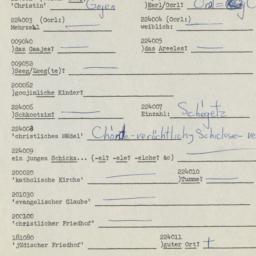 'Christin' Gojen )Earl/Oorl?
224003 (Oorl:) 224004 (Oorl:)
Mehrzahl weiblich:
009040 224005
)das Gaajes? )das Areeles?
009052
)Seer/Leeg(te)?
200052
)goojinliche Kinder?
224006 224007
)Schkootzim? Einzahl: Schegetz
224008
'christliches Mädel' verächtlich
224009
ein junges Schicks... (-el? -sle? -elche? &c)
200020 224010
'katholische Kirche' )Tumme?
201030
'evangelischer Glaube'
200100
'christlicher Friedhof'
181080 224011
'jüdischer Friedhof' )guter Ort? +